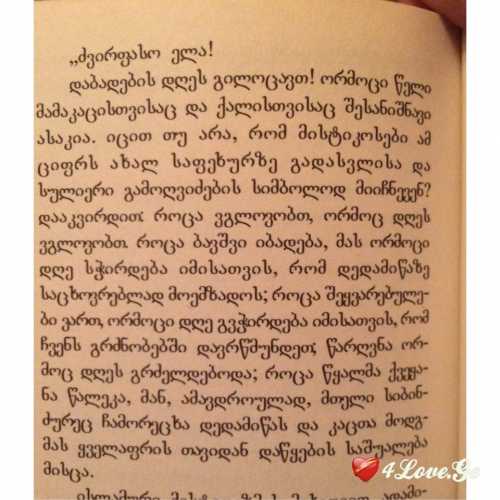 „ძვირფასო ელა!
დაბადების დღეს გილოცავთ! ორმოცი წელი
მამაკაცისთვისაც და ქალისთვისაც შესანიშნავი
ასაკია. იცით თუ არა, რომ მისტიკოსები ამ
ციფრს ახალ საფეხურზე გადასვლისა და
სულიერი გამოღვიძების სიმბოლოდ მიიჩნევენ?
დააკვირდით: როცა ვგლოვობთ, ორმოც დღეს
ვგლოვობთ. როცა ბავშვი იბადება, მას ორმოცი
დღე სჭირდება იმისათვის, რომ დედამიწაზე
საცხოვრებლად მოემზადოს; როცა შეყვარებულე-
ბი ვართ, ორმოცი დღე გვჭირდება იმისათვის, რომ
ჩვენს გრძნობებში დავრწმუნდეთ; წარღვნა ორ-
მოც დღეს გრძელდებოდა; როცა წყალმა ქვეყა-
ნა წალეკა, მან, ამავდროულად, მთელი სიბინ-
ძურეც ჩამორეცხა დედამიწას და კაცთა მოდგ-
მას ყველაფრის თავიდან დაწყების საშუალება
მისცა.
4Love.Ge